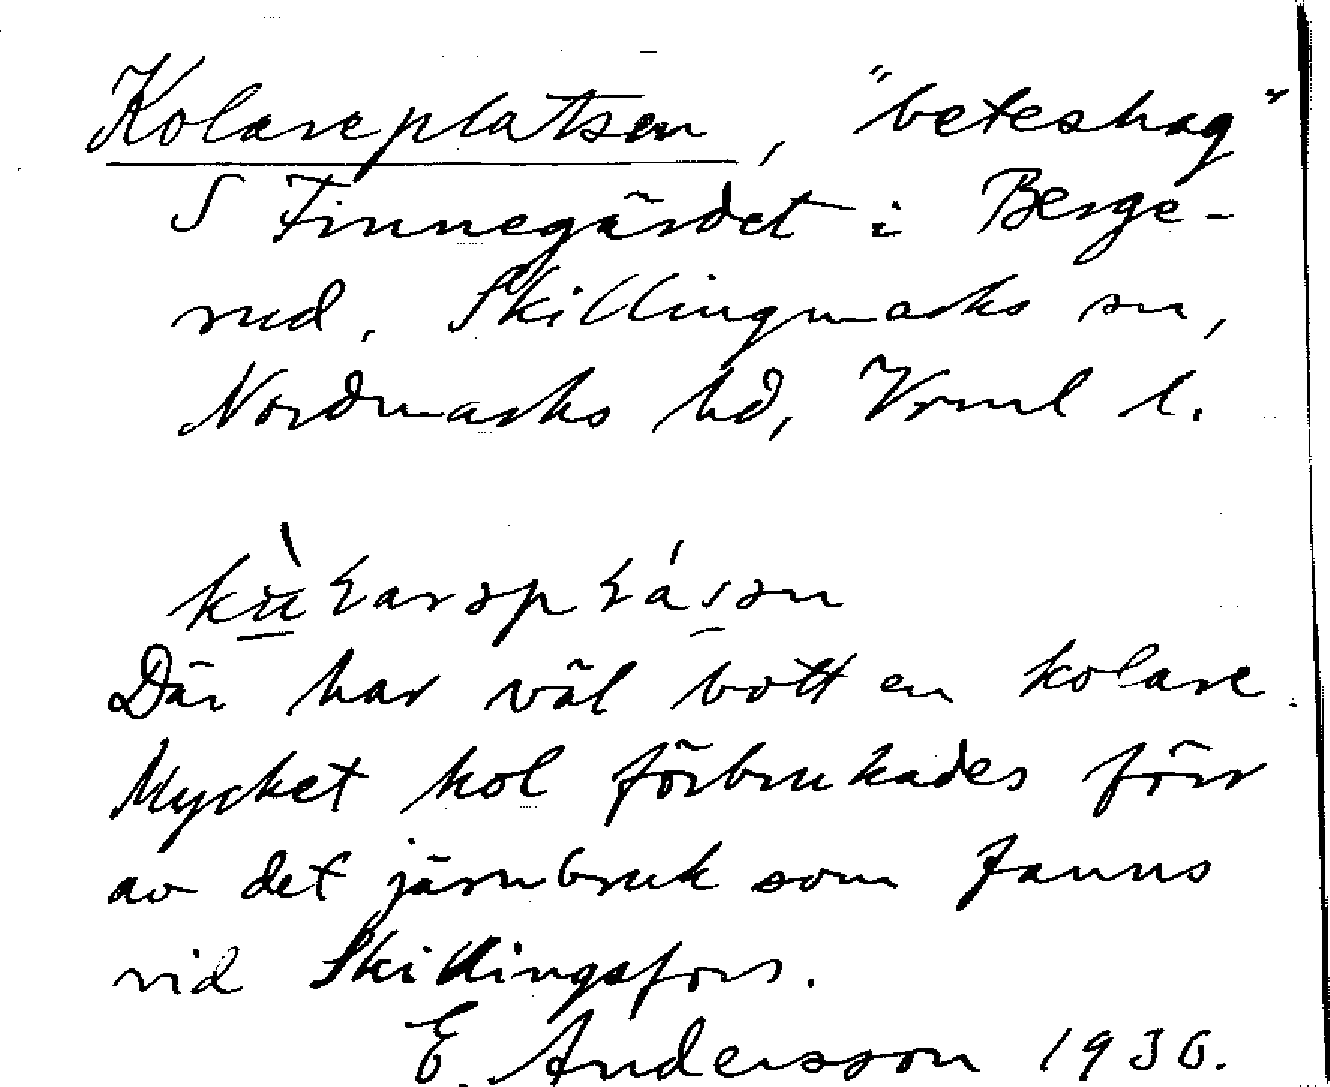 Kolareplatsen, "beteshag"
S Finnegärdet i Berge-
rud, Skillingmarks sn,
Nordmarks hd, Vrml l.
Där har väl bott en kolare.
Mycket kol förbrukades förr
av det järnbruk som fanns
vid Skillingsfors.
E. Andersson 1936.